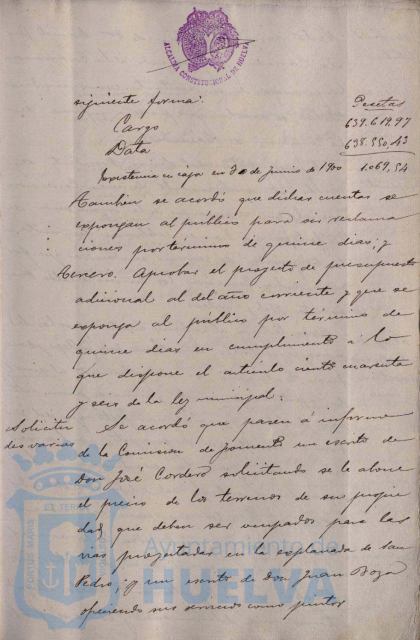 ALCALDIA CONSTITUCIONAL DE HUELVA
siguiente forma:
Pesetas
Cargo 639.619,97
Data 638.550,43
Existencia en caja en 30 de Junio de 1900 1.069,54
Tambien se acordó que dichas cuentas se
expongan al público para oir reclama
ciones por término de quince dias; y
Tercero. Aprobar el proyecto de presupuesto
adicional al del año corriente y que se
exponga al público por término de
quince dias en cumplimiento á lo
que dispone el articulo ciento cuarenta
y seis de la ley municipal.
Solicitu
des varias
Se acordó que pasen á informe
de la Comision de fomento un escrito de
Don José Cordero solicitando se le abone
el precio de los terrenos de su propie
dad que deban ser ocupados para las
vias proyectadas en la explanada de San
Pedro, y un escrito de don Juan Boza
ofreciendo sus servicios como pintor
Ayuntamiento de
HUELVA